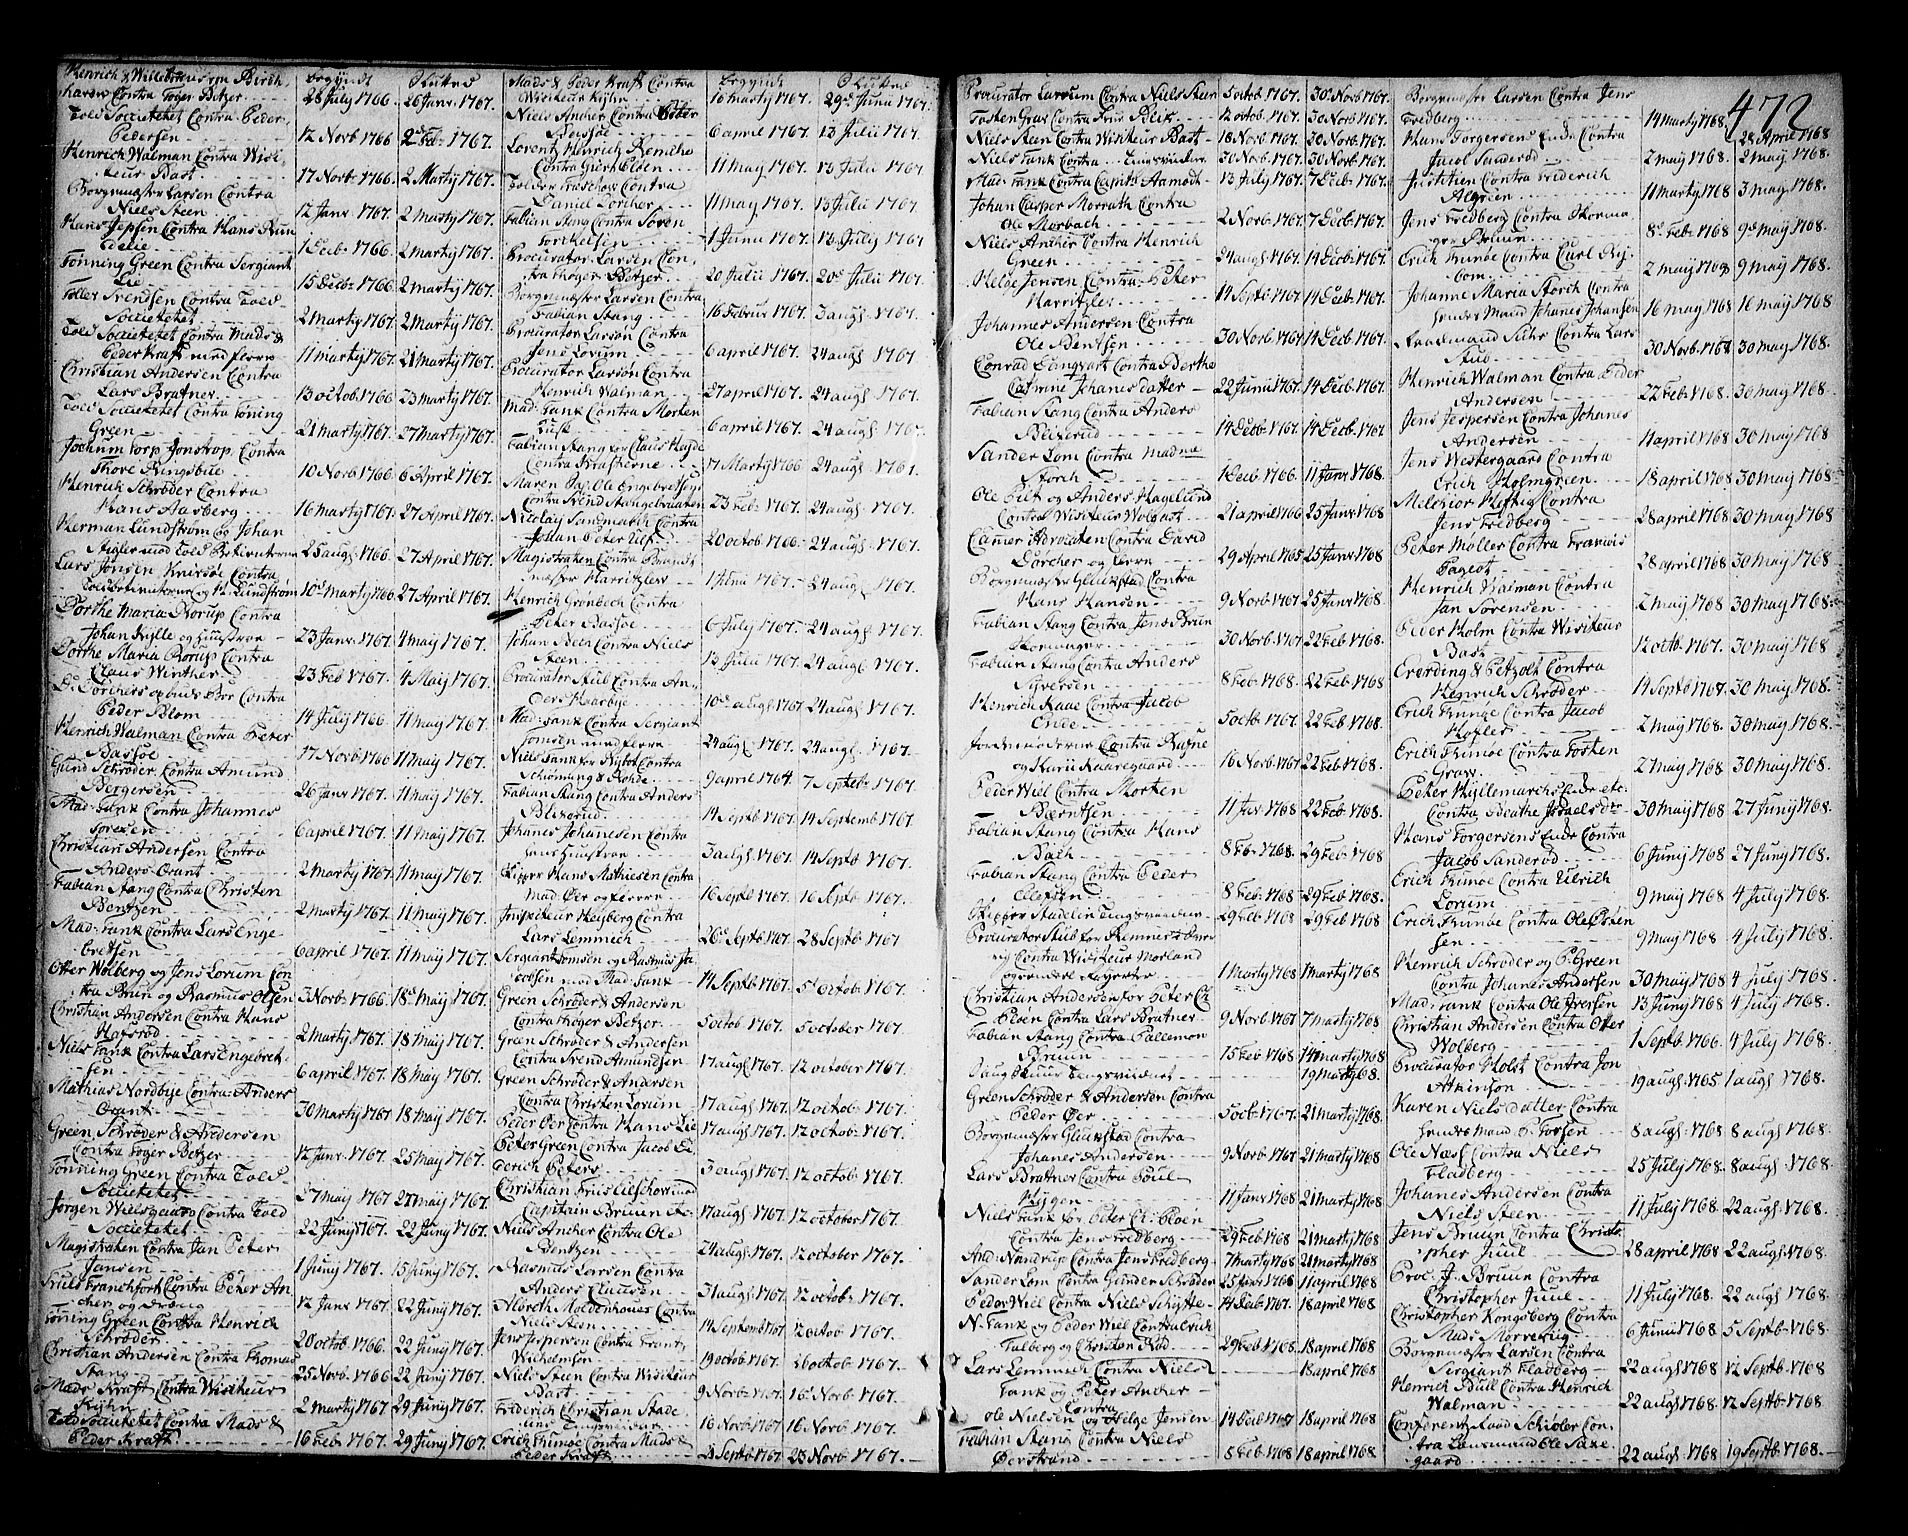 Henrich & Willebransen Birch
Karen Contra Toger Betzer 28 July 1766. 26 Janv. 1767.
Told Societetet Contra Peder
Pedersen 12 Novb 1766 2d Feb. 1767.
Henrich Walman Contra Visi-
teur Bast 17 Novb. 1766. 2 Marty 1767.
Borgemester Larsen Contra
Niels Steen 12 Janv. 1767. 2 marty 1767.
Hans Jepsen Contra Hans Brun
1 Decb. 1766 2 marty 1767.
Tønning Green Contra Sergiant
Lie 15 Decbr 1766 2 marty 1767.
Toller Svendsen Contra Told
Societetet 2 marty 1767. 2 marty 1767.
Told Societetet Contra Mads &
Peder Kraft med flere 11 marty 1767. 21 marty 1767.
Christian Andersen Contra
Lars Bratner 13 octob. 1766 23 marty 1767.
Told Societetet Contra Tøning
Green 21 marty 1767. 27 marty 1767.
Jochum Torp Jonstrop Contra
Thore Ringsbue 10 Novb 1766 6 April 1767.
Henrich Schrøder Contra
Hans Aasberg 16 marty 1767. 27 April 1767.
Herman Lundstrøm og Johan
Told Betienterne 25 augs. 1766. 27 April 1767.
Lars Jonsen Knirsøe Contra
Toldbetienterne og H. Lundstrøm 10de marty 1766 27 April 1767.
Dorthe Maria Rorup Contra
Johan Kylle og hustrue 23 Janv. 1767. 4 may 1767.
Dorthe Maria Rorup Contra
Claus Winther 23 Feb 1767. 4 Maij 1767.
D. Dørchers opbuds Boe Contra
Peder Blom 14 July 1766. 11 may 1767.
Henrich Walman Contra Peter
Bassøe 17 Novb 1766 11 may 1767.
Gund Schrøder Contra Amund
Bergersen 26 Janv 1767. 11 maij 1767.
Mad: Tank Contra Johannes
Sørensen 6 april 1767. 11 may 1767.
Christian Andersen Contra
Anders Grant 2 marty 1767. 11 may 1767.
Fabian Stang Contra Christen
Bentzen 2 marty 1767. 11 may 1767.
Mad: Tank Contra Lars Enge
bretsen 6 april 1767. 11 may 1767.
Otter Wolberg og Jens Lorum Con
tra Brun og Rasmus Olsen 3 Novb. 1766. 18d May 1767.
Christian Andersen Contra Hans
Hafsrød 2 marty 1767. 18 may 1767.
Niels Tank Contra Lars Engebret-
sen 6 april 1767. 18 may 1767.
Mathias Nordbye Contra Anders
Grant 30 marty 1767. 18 may 1767.
Green Schrøder & Andersen
Contra Toger Betzer 12 Janv. 1767. 25 may 1767.
Tønning Green Contra Told-
Societetet 5 may 1767 27 may 1767.
Jørgen Wielsgaard Contra Told
Societetet 22 Junij 1767. 22 Juny 1767.
Magistraten Contra Jan Peter
Jansen 1 Junij 1767. 15 Juny 1767.
Truls Franchfort Contra Peter An
cher og dreng 12 Janv 1767. 22 Juny 1767.
Tøning Green Contra Henrich
Schrøder 20 octob 1766 22 Juny 1767.
Christian Andersen Contra Thomas
Stang 25 Novb 1766. 22 Juny 1767.
Mads Kraft Contra Visiteur
Kyhn 2 marty 1767. 29 Juny 1767.
Toldsocietetet Contra Mads &
Peder Kraft 16 Feb. 1767. 29 Juny 1767.
begyndt Sluttet
Mads & Peder Kraft Contra
Visiteur Kyhn 16 marty 1767. 29d Junii 1767.
Niels Ancher Contra Peter
Bassøe 6 april 1767. 13 Julii 1767.
Lorentz Henrich Remche
Contra Giert Olsen 11 may 1767. 13 Julii 1767.
Daniel Dørcher 11 may 1767. 13 Julii 1767
Fabian Stang Contra Soren
Torkelsen 1 Junii 1767. 13 July 1767
Procurator Larsen Con-
tra Thøger Betzer 20 Julii 1767. 20d Julii 1767.
Borgemester Larsen Contra
Fabian Stang 16 Februr 1767. 3 augs. 1767.
Procurator Larsøn Contra
Jens Lorum 6 april 1767. 24 augs. 1767.
Procurator Larsøn Contra
Henrich Walman 27 april 1767. 24 augs. 1767.
Mad: Tank Contra Morten
Lust 6 april 1767. 24 augs. 1767.
Fabian Stang for Claus Hajde
Contra Krafterne 17 Marty 1766 24 augs. 1767.
Maren Kylle Engebretsen
Contra Svend Stangebraaten 23 Feb. 1767. 24 augs. 1767.
Nicolay Sandmarch Contra
Johan Peter Ulf 20 octob 1766. 24 augs. 1767.
Magistraten Contra Brandt
mester Harritzlev 1 Junii 1767. 24 aug. 1767.
Henrich Grønbech Contra
Peter Bassøe 6 July 1767. 24 augs. 1767.
Johan Peen Contra Niels
Steen 13 Julii 1767. 24 augs. 1767.
Procurator Stub Contra An-
ders Haarbye 10d augs 1767 24 augs. 1767.
Mad: Tank Contra Sergiant
Tomsen med flere 24 augs. 1767. 24 augs. 1767.
Niels Tank for Nybot Contra
Schiønning & Rohde 9 april 1764. 7 Septbr. 1767.
Fabian Stang Contra Anders
Blixerud 14 Septb. 1767. 14 Septemb 1767.
Johanes Johanesen Contra
hans Hustrue 3 augs 1767. 14 Septb. 1767.
Skipper Hans Mathiesen Contra
Mad Øer og flere 16 Septb 1767. 16 Septb 1767.
Inspecteur Heyberg Contra
Lars Lemmich 26d Septb 1767. 28 Septb 1767.
Sergiant Tomsen og Rasmus Ja-
cobsen mod Mad. Tank 14 Septb 1767. 5 octob. 1767.
Green Schrøder & Andersen
Contra Thøger Betzer 5 octob 1767. 5 october 1767.
Green Schrøder & Andersen
Contra Svend Amundsen 17 augs. 1767. 12 october 1767.
Green Schrøder & Andersen
Contra Christen Lorum 17 augs. 1767. 12 octob. 1767.
Peder Øer Contra Hans Lie 17 augs. 1767. 12 octob. 1767.
Peter Green Contra Jacob Di-
derich Peters 3 augs. 1767. 12 octob. 1767.
Christian
Capitain Bruun Ac. 17 augs. 1767. 12 october 1767.
Niels Ancher Contra Ole
Bentzen 24 augs. 1767. 12 october 1767.
Rasmus Larsen Contra
Anders Clausen 31 augs. 1767. 12 octob. 1767.
Moldenhauer Contra
Niels Steen 14 Septemb 1767. 12 octob 1767.
Jens Jespersen Contra Frantz
Wilhelmsen 19 octob. 1767. 26 octob. 1767.
Niels Steen Contra Visiteur
Bast 9 Novb. 1767. 16 Novb. 1767.
Friderich Christian Stade
16 Novb 1767 16 Novb. 1767.
Erich Thunøe Contra Mads &
Peder Kraft 21 Septb 1767. 23 Novb. 1767.
472
Procurator Larsen Contra Niels Steen 5 octob. 1767. 30d Novb. 1767.
Tosten Grav Contra Friis Blik 12 octob. 1767. 30 Novb. 1767.
Niels Steen Contra Visiteur Bast 18 Novb 1767. 30 Novb. 1767.
Niels Tank Contra 30 Novb. 1767. 30 Novb. 1767.
Mad. Tank Contra Capitz. Aamodt 13 July 1767. 7 Decb. 1767.
Johan Casper Morrath Contra
Ole Morbach 2 Novb. 1767. 7 Decb. 1767.
Niels Ancher Contra Henrich
Green 24 augs. 1767. 14 Decb. 1767.
Helge Jensen Contra Peter
Harritzlev 14 Septb 1767. 14 Decb. 1767.
Johannes Andersen Contra
Ole Bentsen 30 Novb 1767 14 Decb. 1767.
Conrad Langvart Contra Berthe
Catrine Johanesdatter 22 Junii 1767. 14 Decb. 1767.
Fabian Stang Contra Anders
Blixerud 14 Decb 1767. 14 Decb. 1767.
Sander Lom Contra Madme
Storch 1 Decb 1766. 11 Janv 1768.
Ole Pilt og Anders Hagelund
Contra Visiteur Wolgast 21 april 1766 25 Janv 1768
Camer Advocaten Contra David
Dørcher og flere 29 April 1765 25 Janv 1768
Borgemester Gluckstad Contra
Hans Hansen 9 Novb 1767 25 Janv 1768.
Fabian Stang Contra Jens Brun
30 Novb 1767 22 Feb 1768.
Fabian Stang Contra Anders
Syversen 8 Feb. 1768. 22 Feb 1768
Henrich Raae Contra Jacob
Ende 5 octb. 1767. 22 Feb 1768.
Jordmoderen Contra Ragne
og Karii Raaregaard 16 Novb 1767 22 Feb 1768.
Peder Wiel Contra Morten
Bærntsen 11 Janv 1768 22 Feb. 1768.
Fabian Stang Contra Hans
Bach 8 Feb. 1768. 29 Feb 1768
Fabian Stang Contra Peder
Olefsen 8 Feb. 1768 29 Feb. 1768.
Skipper Stadelin 29 Feb 1768 29 Feb 1768
Procurator Stub for
Contra Visiteur Morland
1 Marty 1768 1 Marty 1768.
Christian Andersen for Peter Ch.
Ploen Contra Lars Bratner 9 Novb 1767 7 marty 1768
Fabian Stang Contra Pallemon
Bruun 15 Feb 1768 14 marty 1768
19 marty 68.
Green Schrøder & Andersen Contra
Peder Øer 5 octb. 1767. 21 marty 1768.
Borgemester Gluckstad Contra
Johanes Andersen 9 Novb 1767. 21 marty 1768
Lars Bratner Contra Poul
Hygen 11 Janv 1768 21 marty 1768
Niels Tank for Peter Ch: Ploen
Contra Jens Fredberg 29 Feb 1768 21 marty 1768
And: Nandrup Contra Jens Fredberg 7 marty 1768 21 marty 1768
Sander Lom Contra Gunder Schrøder 25 Janv 1768 11 april 1768
Peder Wiel Contra Niels Schytte 14 Decb 1767. 18 april 1768
N: Tank og Peder Wiel Contra
Falberg og Christen Rød 29 Feb 1768 18 april 1768
Lars Lemmich Contra Niels
Tank og Peter Ancher 18 april 1768
Contra
Ole Nielsen og Helge Jensen 14 Decb 1767 18 april 1768
Fabian Stang Contra Niels
Ørstrand 8 Feb 1768 18 april 1768
Borgemester Larsen Contra Jens
Fredberg 14 marty 1768 28 April 1768
Hans Torgersens Enke Contra
Jacob Sanderød 2 may 1768. 2 may 1768.
Justitien Contra Friderich
Algreen 11 marty 1768 3 may 1768.
Jens Fredberg Contra
8d Feb 1768 9d may 1768.
Erich Thunøe Contra Carl Ny-
bom 2 maij 1768 9 may 1768.
Johanne Maria Storch Contra
hendes Mand Johanes Johansen 16 may 1768 16 may 1768
Laxmand Suhr Contra Lars
Stub 30 Novb. 1767 30 may 1768.
Henrich Walman Contra Peder
Andersen 22 Feb. 1768 30 may 1768
Jens Jespersen Contra Johanes
Andersen 11 april 1768 30 May 1768
Jens Westergaard Contra
Erich Holmgreen 18 april 1768 30 may 1768.
Melchior Heftig Contra
Jens Fredberg 28 april 1768 30 may 1768
Peter Møller Contra Francois
Pageot 28 april 1768 30 may 1768
Henrich Walman Contra
Jan Sørensen 2 may 1768 30 may 1768
Peder Holm Contra Visiteur
Bast 12 octb. 1767. 30 may 1768
Everding & Petzolt Contra
Henrich Schrøder 14 Septb 1767. 30 may 1768
Erich Thunøe Contra Jacob
Hofler 2 may 1768 30 may 1768
Erich Thunøe Contra Tosten
Grav 2 may 1768 30 may 1768
Peter Hyllemarchs Enke etc.
Contra Beathe Israelsdr 30 Maij 1768 27 Juny 1768.
Hans Torgersens Enke Contra
Jacob Sanderød 6 Junij 1768 27 Juny 1768.
Erich Thunøe Contra Ulrich
Lorum 9 may 1768 4 July 1768.
Erich Thunøe Contra Ole Esken
sen 9 may 1768 4 July 1768.
Henrich Schrøder og P. Green
Contra Johanes Andersen 30 May 1768 4 July 1768.
Mad: Tank Contra Ole Iversen 13 Juny 1768 4 July 1768.
Christian Andersen Contra Otter
Wolberg 1 Septb. 1766. 4 July 1768.
Procurator Holst Contra Jon
Atkinson 19 augs. 1765 1 augs. 1768.
Karen Nielsdatter Contra
hendes Mand P. Torsen 8 augs. 1768 8 augs. 1768
Ole Næss Contra Niels
Fladberg 25 July 1768 8 augs. 1768.
Johanes Andersen Contra
Niels Steen 11 July 1768 22 augs. 1768.
Jens Bruun Contra Christo-
pher Juul 28 april 1768 22 augs. 1768.
Proc: J. Bruun Contra
Christopher Juul 11 July 1768 22 augs 1768
Christopher Kongsberg Contra
Mads Morrevig 6 Junii 1768 5 Septb. 1768.
Borgemester Larsen Contra
Sergiant Fladberg 22 augs 1768 12 Septb. 1768
Henrich Bull Contra Henrich
Walman 22 augs. 1768 12 Septb 1768
Conferentz Raad Schiøler Con-
tra Lensmand Ole Saxe-
gaard 22 augs. 1768 19 Septb. 1768.